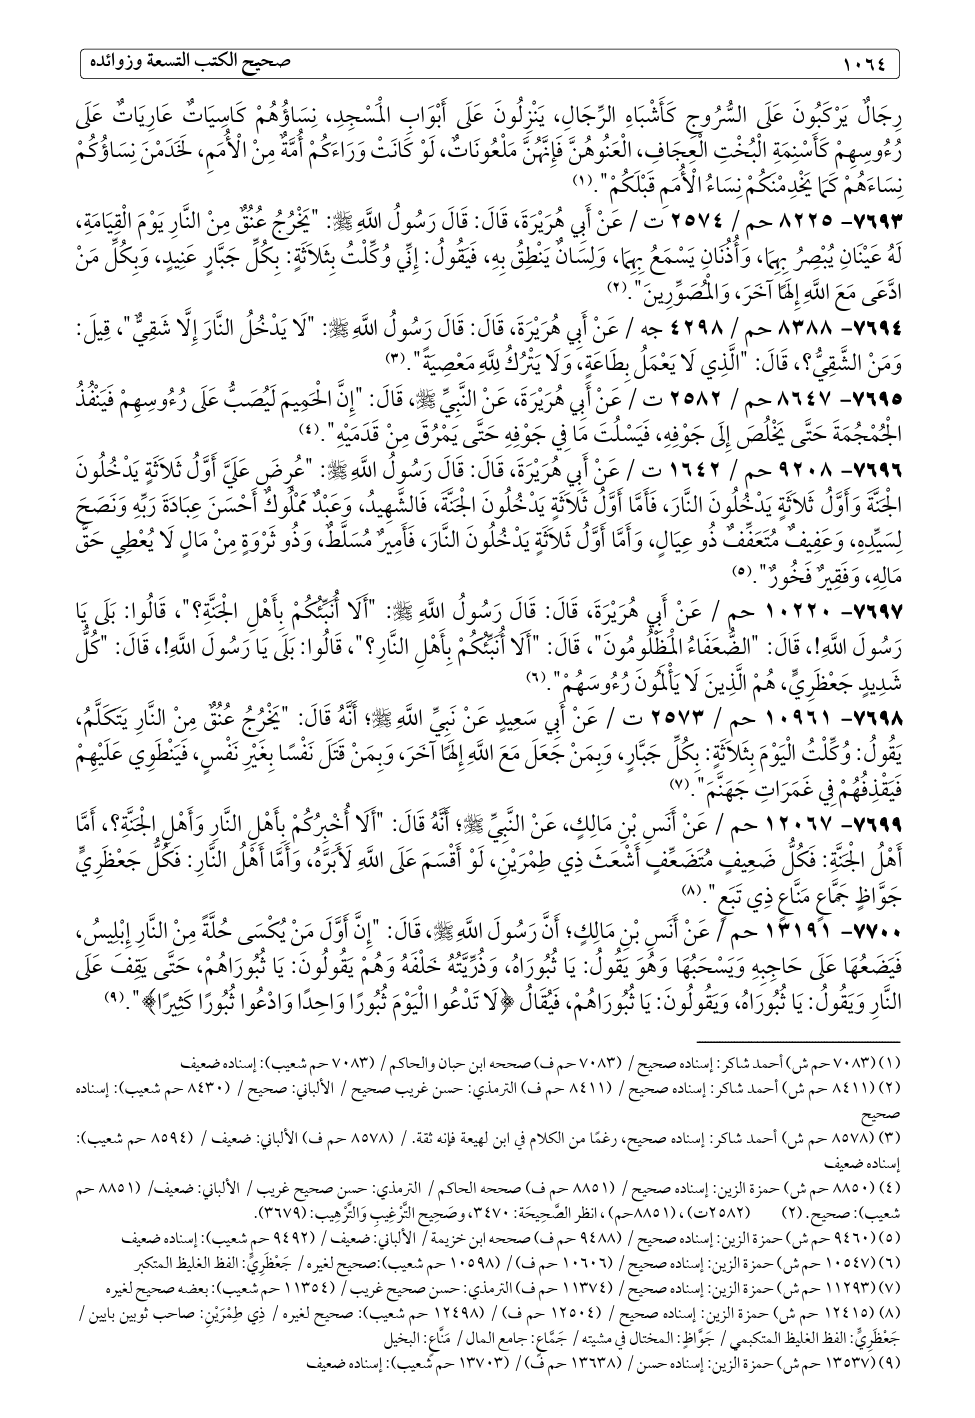 ١٠٦٤ صحيح الكتب التسعة وزوائده
رِجَالٌ يَرْكَبُونَ عَلَى السُّرُوجِ كَأَشْبَاهِ الرِّجَالِ، يَنْزِلُونَ عَلَى أَبْوَابِ الْمَسْجِدِ، نِسَاؤُهُمْ كَاسِيَاتٌ عَارِيَاتٌ عَلَى
رُءُوسِهِمْ كَأَسْنِمَةِ الْبُخْتِ الْعِجَافِ، الْعَنُوهُنَّ فَإِنَّهُنَّ مَلْعُونَاتٌ، لَوْ كَانَتْ وَرَاءَكُمْ أُمَّةٌ مِنْ الْأُمَمِ، لَخَدَمْنَ نِسَاؤُكُمْ
نِسَاءَهُمْ كَمَا يَخْدِمْنَكُمْ نِسَاءُ الْأُمَمِ قَبْلَكُمْ".(١)
٧٦٩٣- ٨٢٢٥ حم / ٢٥٧٤ ت / عَنْ أَبِي هُرَيْرَةَ، قَالَ: قَالَ رَسُولُ اللَّهِ ﷺ: "يَخْرُجُ عُنُقٌ مِنْ النَّارِ يَوْمَ الْقِيَامَةِ،
لَهُ عَيْنَانِ يُبْصِرُ بِهِمَا، وَأُذُنَانِ يَسْمَعُ بِهِمَا، وَلِسَانٌ يَنْطِقُ بِهِ، فَيَقُولُ: إِنِّي وُكِّلْتُ بِثَلَاثَةٍ: بِكُلِّ جَبَّارٍ عَنِيدٍ، وَبِكُلِّ مَنْ
ادَّعَى مَعَ اللَّهِ إِلَهًا آخَرَ، وَالْمُصَوِّرِينَ".(٢)
٧٦٩٤- ٨٣٨٨ حم / ٤٢٩٨ جه / عَنْ أَبِي هُرَيْرَةَ، قَالَ: قَالَ رَسُولُ اللَّهِ ﷺ: "لَا يَدْخُلُ النَّارَ إِلَّا شَقِيٌّ"، قِيلَ:
وَمَنْ الشَّقِيُّ؟، قَالَ: "الَّذِي لَا يَعْمَلُ بِطَاعَةٍ، وَلَا يَتْرُكُ لِلَّهِ مَعْصِيَةً".(٣)
٧٦٩٥- ٨٦٤٧ حم / ٢٥٨٢ ت / عَنْ أَبِي هُرَيْرَةَ، عَنْ النَّبِيِّ ﷺ، قَالَ: "إِنَّ الْحَمِيمَ لَيُصَبُّ عَلَى رُءُوسِهِمْ فَيَنْفُذُ
الْجُمْجُمَةَ حَتَّى يَخْلُصَ إِلَى جَوْفِهِ، فَيَسْلُتَ مَا فِي جَوْفِهِ حَتَّى يَمْرُقَ مِنْ قَدَمَيْهِ".(٤)
٧٦٩٦- ٩٢٠٨ حم / ١٦٤٢ ت / عَنْ أَبِي هُرَيْرَةَ، قَالَ: قَالَ رَسُولُ اللَّهِ ﷺ: "عُرِضَ عَلَيَّ أَوَّلُ ثَلَاثَةٍ يَدْخُلُونَ
الْجَنَّةَ وَأَوَّلُ ثَلَاثَةٍ يَدْخُلُونَ النَّارَ، فَأَمَّا أَوَّلُ ثَلَاثَةٍ يَدْخُلُونَ الْجَنَّةَ، فَالشَّهِيدُ، وَعَبْدٌ مَمْلُوكٌ أَحْسَنَ عِبَادَةَ رَبِّهِ وَنَصَحَ
لِسَيِّدِهِ، وَعَفِيفٌ مُتَعَفِّفٌ ذُو عِيَالٍ، وَأَمَّا أَوَّلُ ثَلَاثَةٍ يَدْخُلُونَ النَّارَ، فَأَمِيرٌ مُسَلَّطٌ، وَذُو ثَرْوَةٍ مِنْ مَالٍ لَا يُعْطِي حَقَّ
مَالِهِ، وَفَقِيرٌ فَخُورٌ".(٥)
٧٦٩٧- ١٠٢٢٠ حم / عَنْ أَبِي هُرَيْرَةَ، قَالَ: قَالَ رَسُولُ اللَّهِ ﷺ: "أَلَا أُنَبِّئُكُمْ بِأَهْلِ الْجَنَّةِ؟"، قَالُوا: بَلَى يَا
رَسُولَ اللَّهِ!، قَالَ: "الضُّعَفَاءُ الْمَظْلُومُونَ"، قَالَ: "أَلَا أُنَبِّئُكُمْ بِأَهْلِ النَّارِ؟"، قَالُوا: بَلَى يَا رَسُولَ اللَّهِ!، قَالَ: "كُلُّ
شَدِيدٍ جَعْظَرِيٍّ، هُمْ الَّذِينَ لَا يَأْلَمُونَ رُءُوسَهُمْ".(٦)
٧٦٩٨- ١٠٩٦١ حم / ٢٥٧٣ ت / عَنْ أَبِي سَعِيدٍ عَنْ نَبِيِّ اللَّهِ ﷺ؛ أَنَّهُ قَالَ: "يَخْرُجُ عُنُقٌ مِنْ النَّارِ يَتَكَلَّمُ،
يَقُولُ: وُكِّلْتُ الْيَوْمَ بِثَلَاثَةٍ: بِكُلِّ جَبَّارٍ، وَبِمَنْ جَعَلَ مَعَ اللَّهِ إِلَهًا آخَرَ، وَبِمَنْ قَتَلَ نَفْسًا بِغَيْرِ نَفْسٍ، فَيَنْطَوِي عَلَيْهِمْ
فَيَقْذِفُهُمْ فِي غَمَرَاتِ جَهَنَّمَ".(٧)
٧٦٩٩- ١٢٠٦٧ حم / عَنْ أَنَسِ بْنِ مَالِكٍ، عَنْ النَّبِيِّ ﷺ؛ أَنَّهُ قَالَ: "أَلَا أُخْبِرُكُمْ بِأَهْلِ النَّارِ وَأَهْلِ الْجَنَّةِ؟، أَمَّا
أَهْلُ الْجَنَّةِ: فَكُلُّ ضَعِيفٍ مُتَضَعِّفٍ أَشْعَثَ ذِي طِمْرَيْنِ، لَوْ أَقْسَمَ عَلَى اللَّهِ لَأَبَرَّهُ، وَأَمَّا أَهْلُ النَّارِ: فَكُلُّ جَعْظَرِيٍّ
جَوَّاظٍ جَمَّاعٍ مَنَّاعٍ ذِي تَبَعٍ".(٨)
٧٧٠٠- ١٣١٩١ حم / عَنْ أَنَسِ بْنِ مَالِكٍ؛ أَنَّ رَسُولَ اللَّهِ ﷺ، قَالَ: "إِنَّ أَوَّلَ مَنْ يُكْسَى حُلَّةً مِنْ النَّارِ إِبْلِيسُ،
فَيَضَعُهَا عَلَى حَاجِبِهِ وَيَسْحَبُهَا وَهُوَ يَقُولُ: يَا ثُبُورَاهُ، وَذُرِّيَّتُهُ خَلْفَهُ وَهُمْ يَقُولُونَ: يَا ثُبُورَاهُمْ، حَتَّى يَقِفَ عَلَى
النَّارِ وَيَقُولُ: يَا ثُبُورَاهُ، وَيَقُولُونَ: يَا ثُبُورَاهُمْ، فَيُقَالُ ﴿لَا تَدْعُوا الْيَوْمَ ثُبُورًا وَاحِدًا وَادْعُوا ثُبُورًا كَثِيرًا﴾".(٩)
(١) (٧٠٨٣ حم ش) أحمد شاكر: إسناده صحيح / (٧٠٨٣ حم ف) صححه ابن حبان والحاكم / (٧٠٨٣ حم شعيب): إسناده ضعيف
(٢) (٨٤١١ حم ش) أحمد شاكر: إسناده صحيح / (٨٤١١ حم ف) الترمذي: حسن غريب صحيح / الألباني: صحيح / (٨٤٣٠ حم شعيب): إسناده
صحيح
(٣) (٨٥٧٨ حم ش) أحمد شاكر: إسناده صحيح، رغمًا من الكلام في ابن لهيعة فإنه ثقة. / (٨٥٧٨ حم ف) الألباني: ضعيف / (٨٥٩٤ حم شعيب):
إسناده ضعيف
(٤) (٨٨٥٠ حم ش) حمزة الزين: إسناده صحيح / (٨٨٥١ حم ف) صححه الحاكم / الترمذي: حسن صحيح غريب / الألباني: ضعيف/ (٨٨٥١ حم
شعيب): صحيح. (٢) (٢٥٨٢ت) ، (٨٨٥١حم) ، انظر الصَّحِيحَة: ٣٤٧٠، وصَحِيح التَّرْغِيبِ وَالتَّرْهِيب: (٣٦٧٩).
(٥) (٩٤٦٠ حم ش) حمزة الزين: إسناده صحيح / (٩٤٨٨ حم ف) صححه ابن خزيمة / الألباني: ضعيف / (٩٤٩٢ حم شعيب): إسناده ضعيف
(٦) (١٠٥٤٧ حم ش) حمزة الزين: إسناده صحيح / (١٠٦٠٦ حم ف)/ (١٠٥٩٨ حم شعيب):صحيح لغيره / جَعْظَرِيٍّ: الفظ الغليظ المتكبر
(٧) (١١٢٩٣ حم ش) حمزة الزين: إسناده صحيح / (١١٣٧٤ حم ف) الترمذي: حسن صحيح غريب/ (١١٣٥٤ حم شعيب): بعضه صحيح لغيره
(٨) (١٢٤١٥ حم ش) حمزة الزين: إسناده صحيح / (١٢٥٠٤ حم ف)/ (١٢٤٩٨ حم شعيب): صحيح لغيره / ذِي طِمْرَيْنِ: صاحب ثوبين بايين /
جَعْظَرِيٍّ: الفظ الغليظ المتكبمي / جَوَّاظٍ: المختال في مشيته / جَمَّاعٍ: جامع المال / مَنَّاعٍ: البخيل
(٩) (١٣٥٣٧ حم ش) حمزة الزين: إسناده حسن / (١٣٦٣٨ حم ف)/ (١٣٧٠٣ حم شعيب): إسناده ضعيف